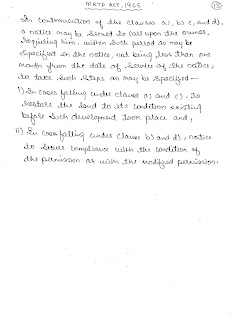 MRTP ACT, 1966
In contravention of the clauses a), b) c, and d),
a notice may be served to call upon the owner,
requiring him, within such period as may be
specified in the notice, not being less than one
month from the date of service of the notice,
to take such steps as may be specified —
i) In cases falling under clause a) and c), to
restore the land to its condition existing
before such development took place and,
ii) In case falling under clause b) and d), notice
to secure compliance with the condition of
the permission or with the modified permission.